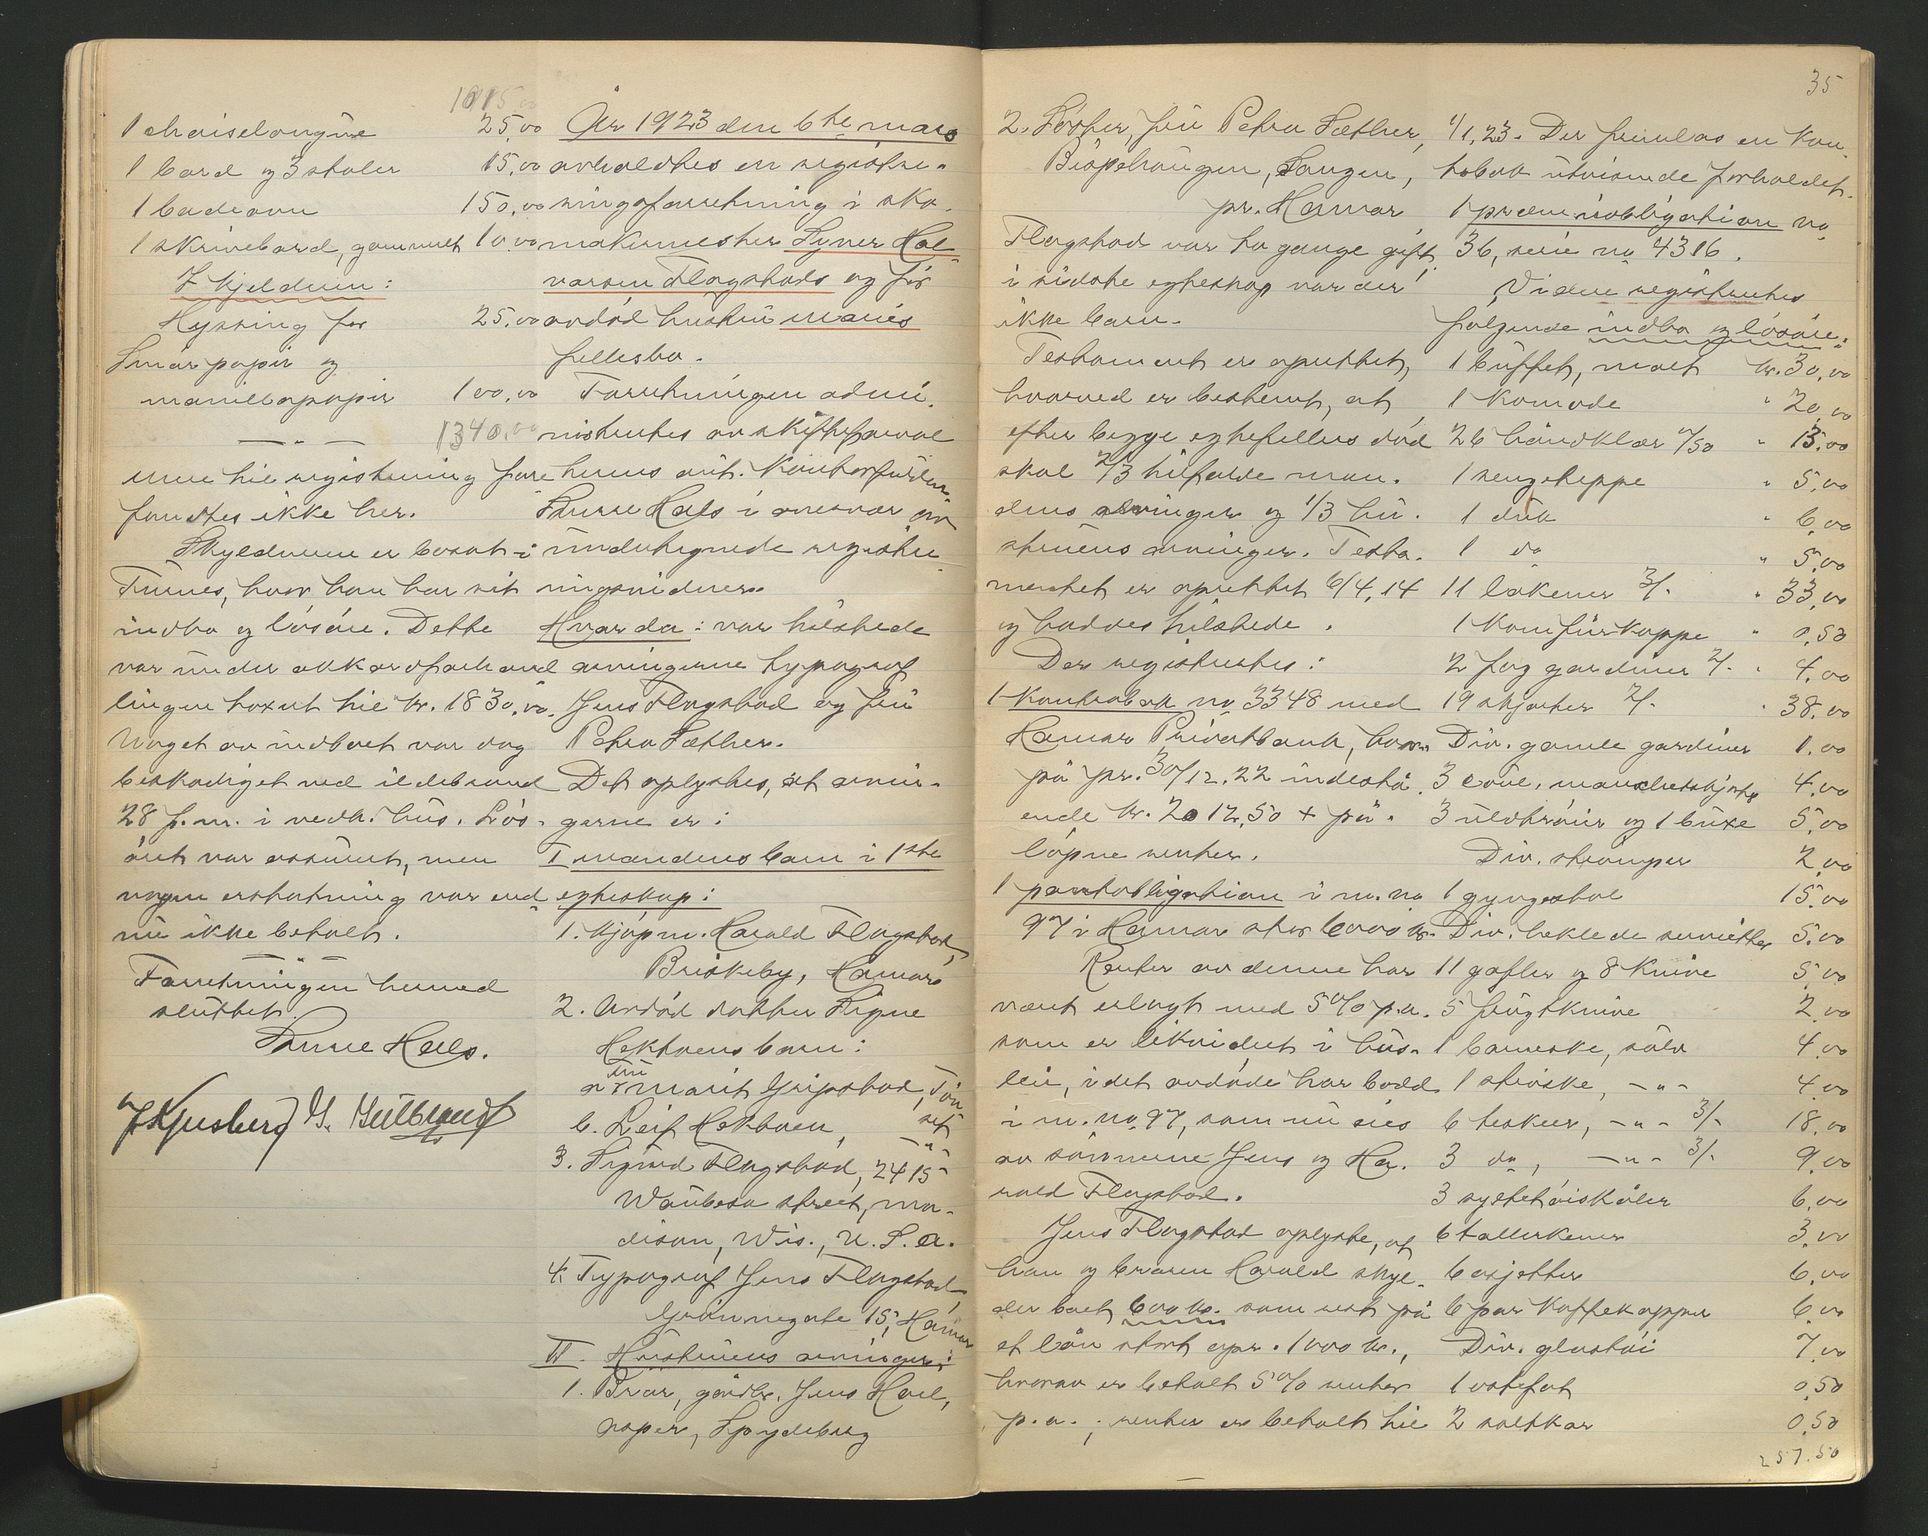 1015,00
1 chaiselongue 25,00
1 bord og 3 stoler 15,00
1 badeovn 150,00
1 skrivebord, gammelt 10,00
I kjelderen:
Hyssing for 25,00
Smørpapir og
manillapapir 100,00
— " — 1340,00
mere til registrering fore
fandtes ikke her.
Skyldneren er bosat i
Furnes, hvor han har sit
indbo og løsøre. Dette
var under akkordforhand
lingen taxert til kr. 1830,00.
Noget av indboet var dog
beskadiget ved ildebrand
28 f.m. i vedk. hus. Løs-
øret var assurert, men
nogen erstatning var end
nu ikke betalt.
Forretningen hermed
sluttet.
Thure Hals.
År 1923 den 6te mars
avholdtes en registre-
ringsforretning i sko-
makermester Syver Hal-
varsen Flagstads og før
avdød hustru Maries
fellesbo.
Forretningen admi-
nistrertes av skifteforval
terens aut. kontorfuldm.
Thure Hals i nærvær av
undertegnede registre
ringsvidner.
Hvorda: var tilstede
arvingerne typograf
Jens Flagstad og fru
Petra Sæther.
Det oplystes, at arvin-
gerne er:
I mandens barn i 1ste
egteskap:
1. Kjøpm. Harald Flagstad,
Briskeby, Hamar
2. Avdød datter Signe
Hektoens barn:
a. fru Marit Gripstad, Tøn
set
b. Leif Hektoen, — " —
3. Sigurd Flagstad, 2415
Waubesa street, Ma-
dison, Wis., U.S.A.
4. Typograf Jens Flagstad,
Grønnegate 15, Hamar
II. Hustruens arvinger:
1. Bror, gårdbr. Jens Hael,
naper, Spydeberg
35
2. Søster, fru Petra Sæther,
Bispehaugen, Stangen,
pr. Hamar
Flagstad var to gange gift,
i sidste egteskap var der
ikke barn.
Testament er oprettet,
hvorved er bestemt, at
efter begge egtefellers død
skal 2/3 tilfalde man-
dens arvinger og 1/3 hu-
struens arvinger. Testa-
mentet er oprettet 6/4,14
og havdes tilstede.
Der registrertes:
1 kontrabok no 3348 med
Hamar Privatbank, hvor-
på pr. 30/12.22 indestå-
ende kr. 2012,50 + på-
løpne renter.
1 pantobligation i m.no
97 i Hamar stor 6000 kr.
Renter av denne har
været erlagt med 5% p.a.
som er likvidert i hus-
leie, i det avdøde har bodd
i m. no. 97, som nu eies
av sønnene Jens og Ha-
rald Flagstad.
Jens Flagstad oplyste, at
han og broren Harald skyl-
der boet 600 kr. som rest på
et lån stort opr. 1000 kr.,
hvorav er betalt 5% renter
p.a.; renter er betalt til
1/1, 23. Der fremlas en kon-
trabok utvisende forholdet.
1 præmieobligation no
36, serie no 4316.
Videre registrertes
følgende indbo og løsøre:
1 buffet, malt kr. 30,00
1 komode " 20,00
26 håndklær à /50 " 13,00
1 sengeteppe " 5,00
1 duk " 6,00
1 do " 5,00
11 lakener 3/- " 33,00
1 komfurkappe " 0,50
2 fag gardiner 2/- " 4,00
19 skjorter 2/- " 38,00
Div. gamle gardiner 1,00
3 coul. manchetskjorte 4,00
3 uldtrøier og 1 buxe 5,00
Div. strømper 2,00
1 gyngestol 15,00
Div. heklede servietter 5,00
11 gafler og 8 knive 5,00
5 frugtknive 2,00
1 barneske, sølv 4,00
1 strøske, — " — 4,00
6 teskeer, — " — 3/- 18,00
3 do, — " — 3/- 9,00
3 syltetøiskåler 6,00
6 tallerkener 3,00
6 asjetter 6,00
6 par kaffekopper 6,00
Div. glastøi 7,00
1 ostefat 0,50
2 saltkar 0,50
257,50